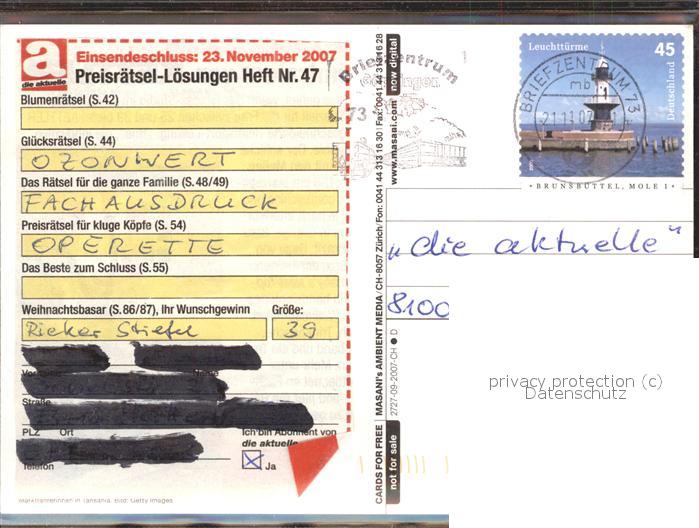 a
die aktuelle
Einsendeschluss: 23. November 2007
Preisrätsel-Lösungen Heft Nr. 47
Blumenrätsel (S. 42)
Glücksrätsel (S. 44)
OZONWERT
Das Rätsel für die ganze Familie (S. 48/49)
FACHAUSDRUCK
Preisrätsel für kluge Köpfe (S. 54)
OPERETTE
Das Beste zum Schluss (S. 55)
Weihnachtsbasar (S. 86/87), Ihr Wunschgewinn Größe:
Rieker Stiefel 39
Straße
PLZ Ort
Telefon
Ich bin Abonnent von
die aktuelle
Ja
Marktfahrerinnen in Tansania. Bild: Getty Images
CARDS FOR FREE MASANI's AMBIENT MEDIA / CH-8057 Zürich / Fon: 0041 44 313 16 30 / Fax: 0041 44 313 16 28
not for sale 2727-09-2007-CH D www.masani.com now digital
Briefzentrum
73
Leuchttürme 45
Deutschland
BRIEFZENTRUM 73
mb
21.11.07
BRUNSBÜTTEL, MOLE 1
„die aktuelle"
8100
privacy protection (c)
Datenschutz